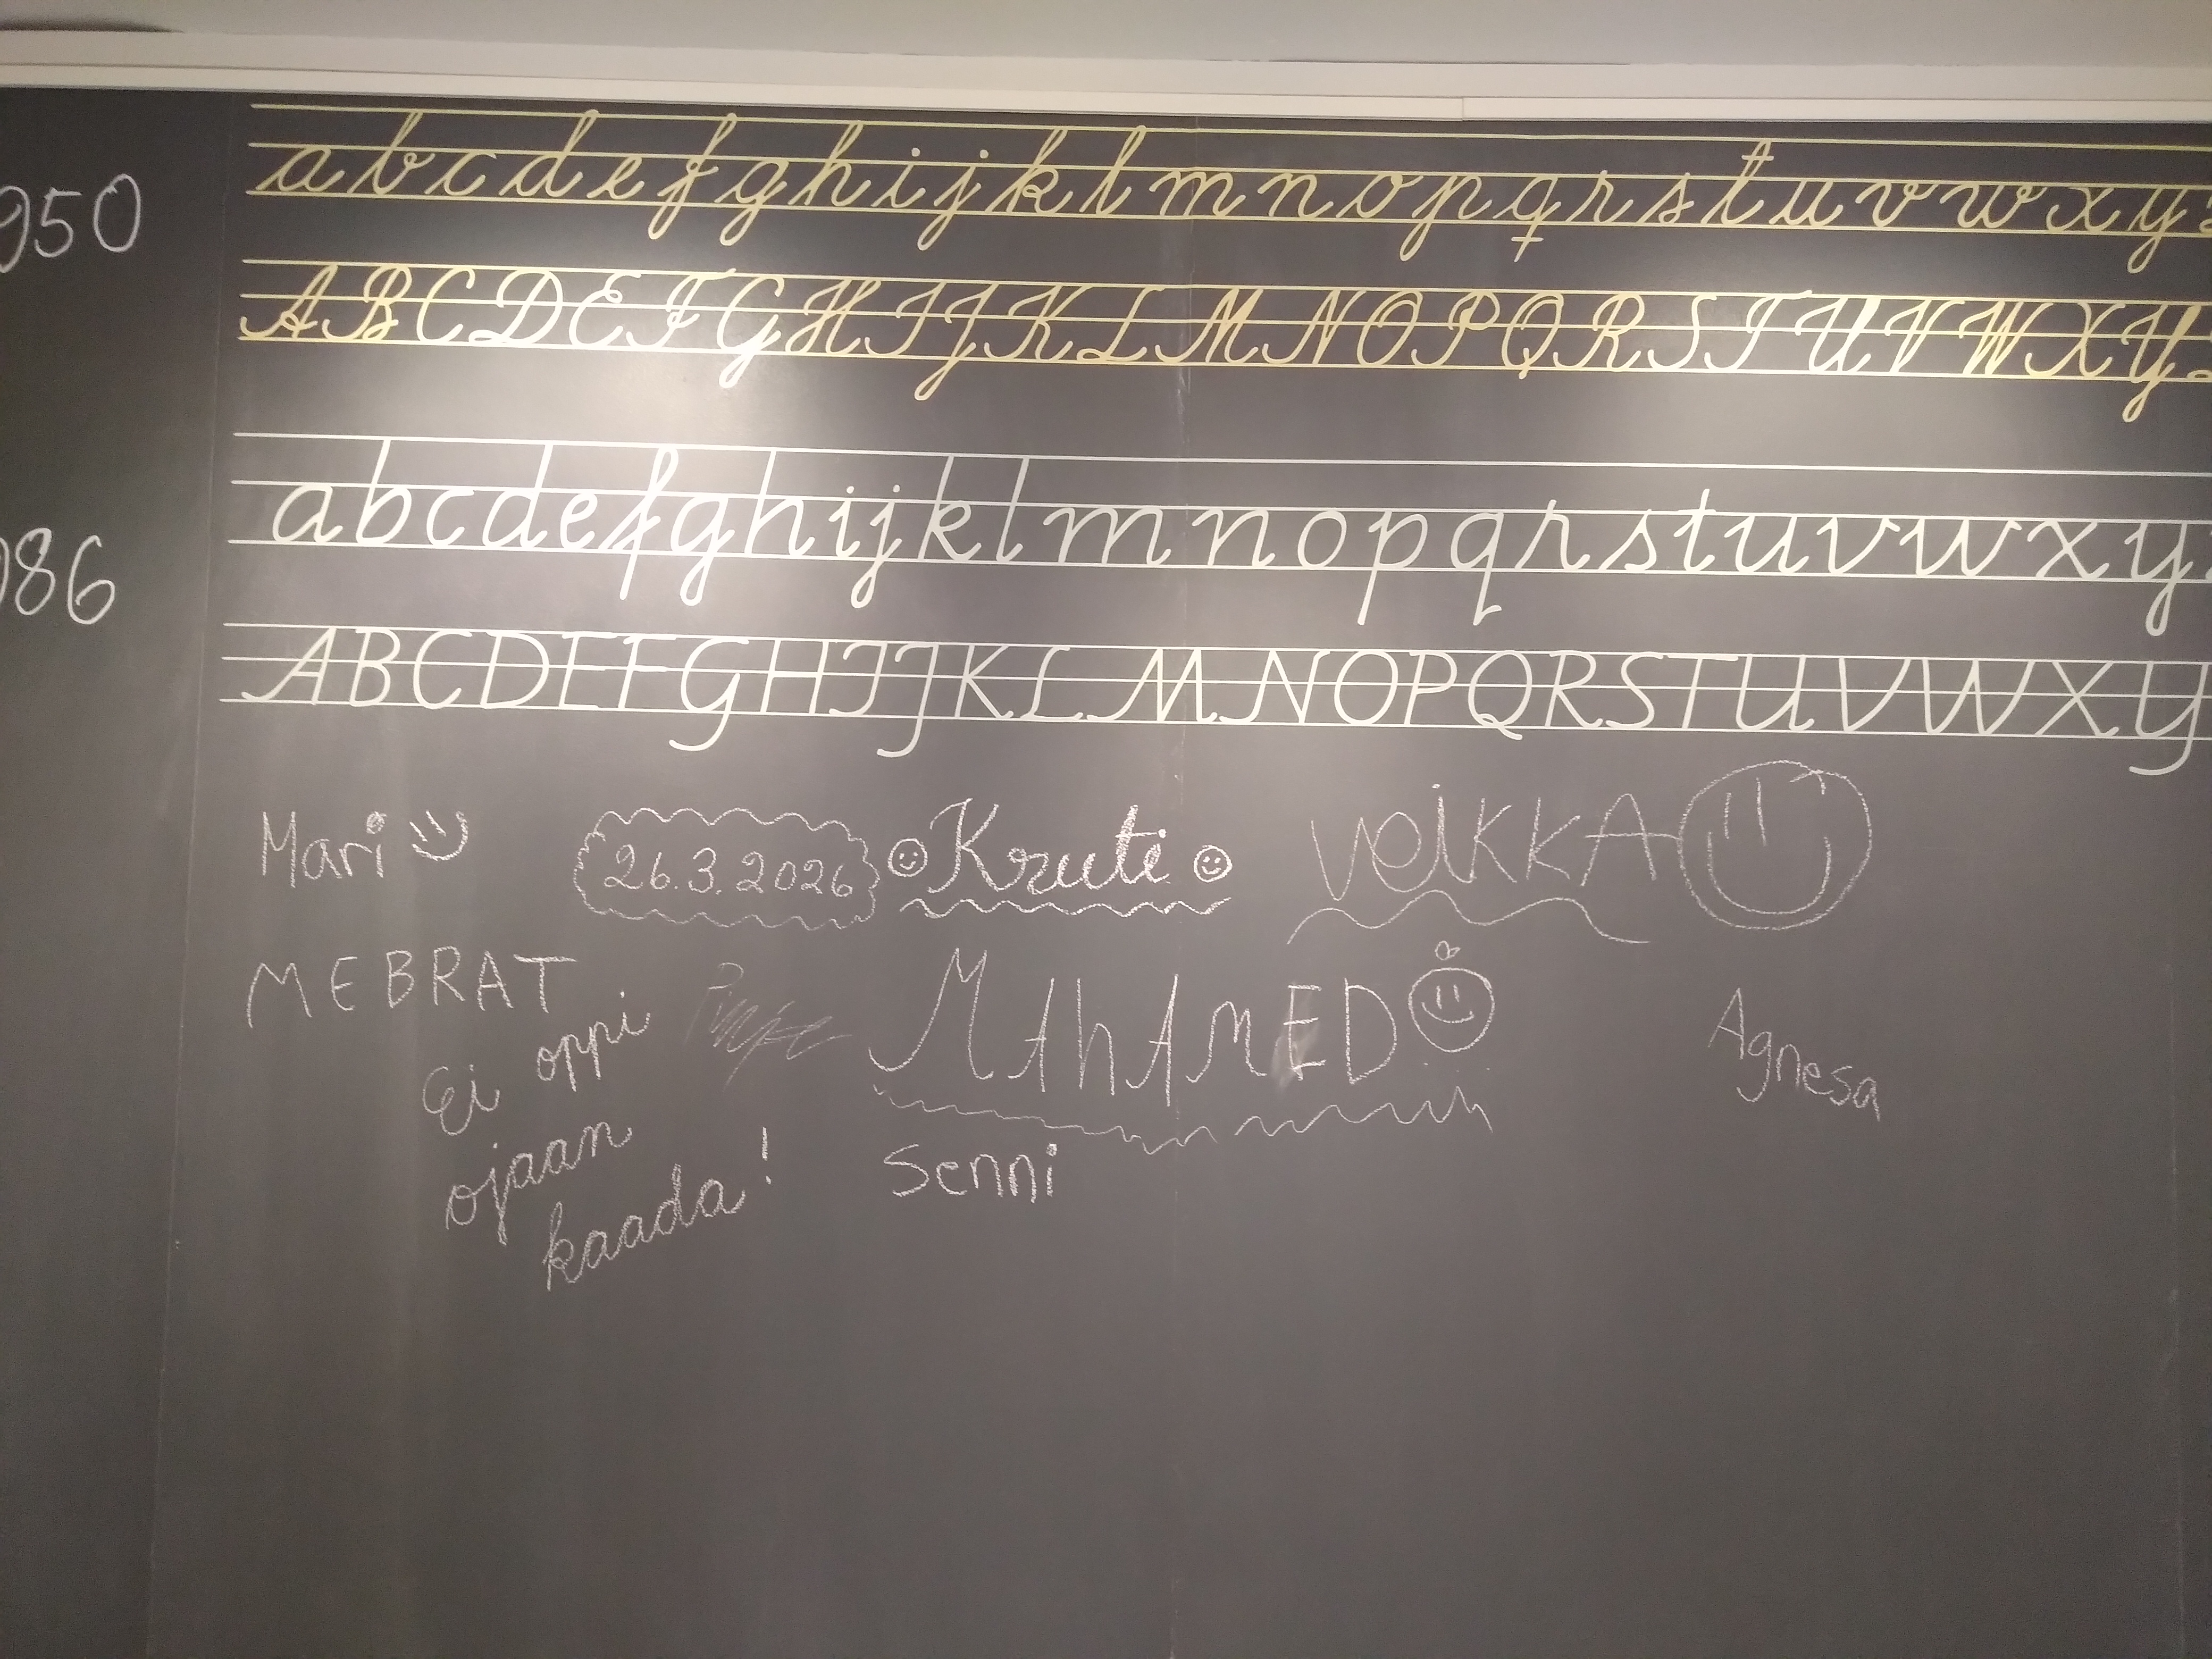 950
abcdefghijklmnopqrstuvwxy
ABCDEFGHIJKLMNOPQRSTUVWXY
986
abcdefghijklmnopqrstuvwxy
ABCDEFGHIJKLMNOPQRSTUVWXY
Mari
26.3.2026
Kruti
VeiKKA
MEBRAT
MAhAMED
Agnesa
Ei oppi
ojaan
kaada!
Senni